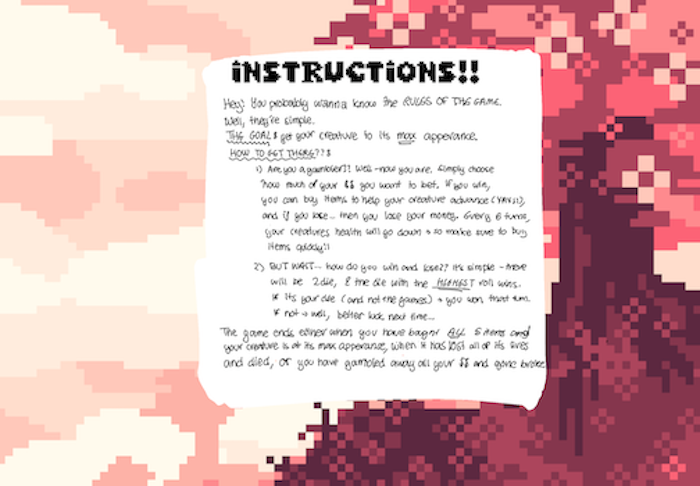 INSTRUCTIONS!!
Hey! You probably wanna know the RULES OF THE GAME.
Well, they're simple.
THE GOAL: get your creature to its max apperance.
HOW TO GET THERE??:
1) Are you a gambler?! Well - now you are. Simply choose
how much of your $$ you want to bet. If you win,
you can buy items to help your creature advance (YAY!!),
and if you lose... then you lose your money. Every 6 turns,
your creatures health will go down + so make sure to buy
items quickly!!
2) BUT WAIT... how do you win and lose?? It's simple - there
will be 2 die, & the die with the HIGHEST roll wins.
* If its your die (and not the games) → you won that turn.
* If not → well, better luck next time...
The game ends either when you have bought ALL 5 items and
your creature is at its max apperance, when it has lost all of its lives
and died, or you have gambled away all your $$ and gone broke